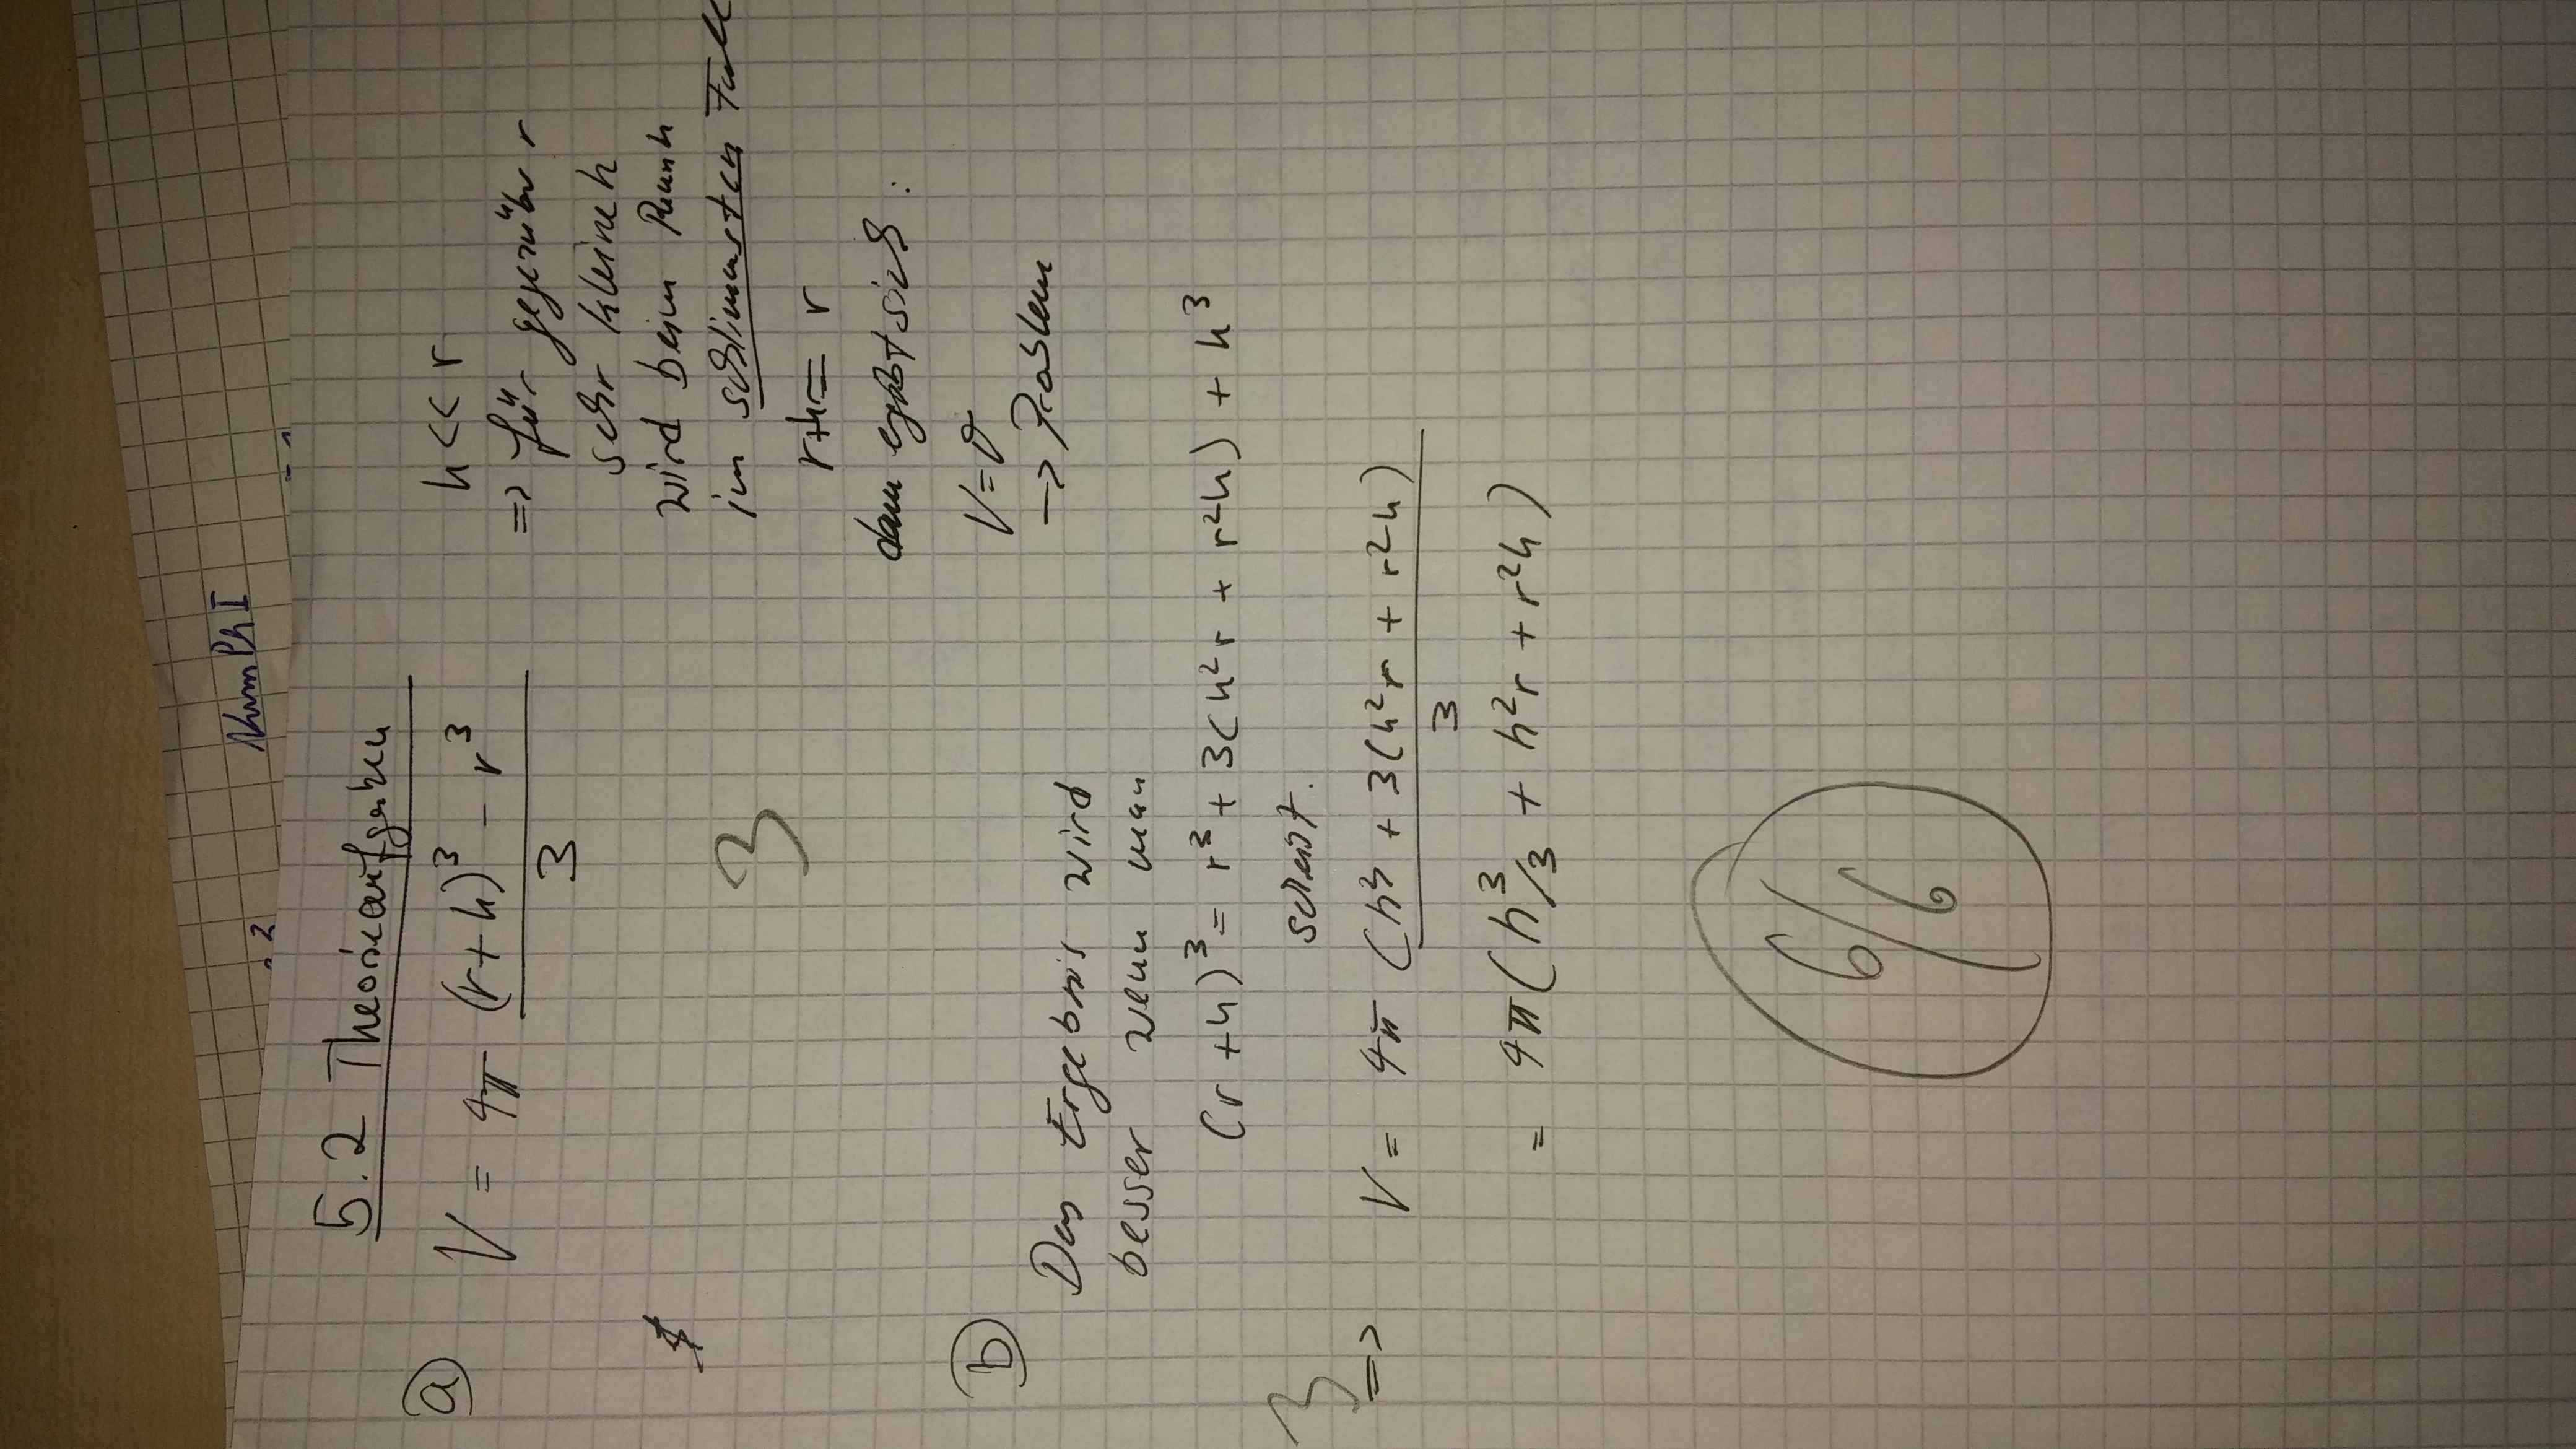 NumPh I
2
5.2 Theorieaufgaben
a)
V = 4π ((r+h)³ - r³)/3
h << r
=> für gegenüber r
sehr kleine h
wird beim
im schlimmsten Fall
r+h = r
dann ergibt sich :
V = 0
-> Problem
3
b)
Das Ergebnis wird
besser wenn man
(r+h)³ = r³ + 3(h²r + r²h) + h³
schreibt.
3
=> V = 4π (h³ + 3(h²r + r²h)/3
= 4π(h³/3 + h²r + r²h)
6/6